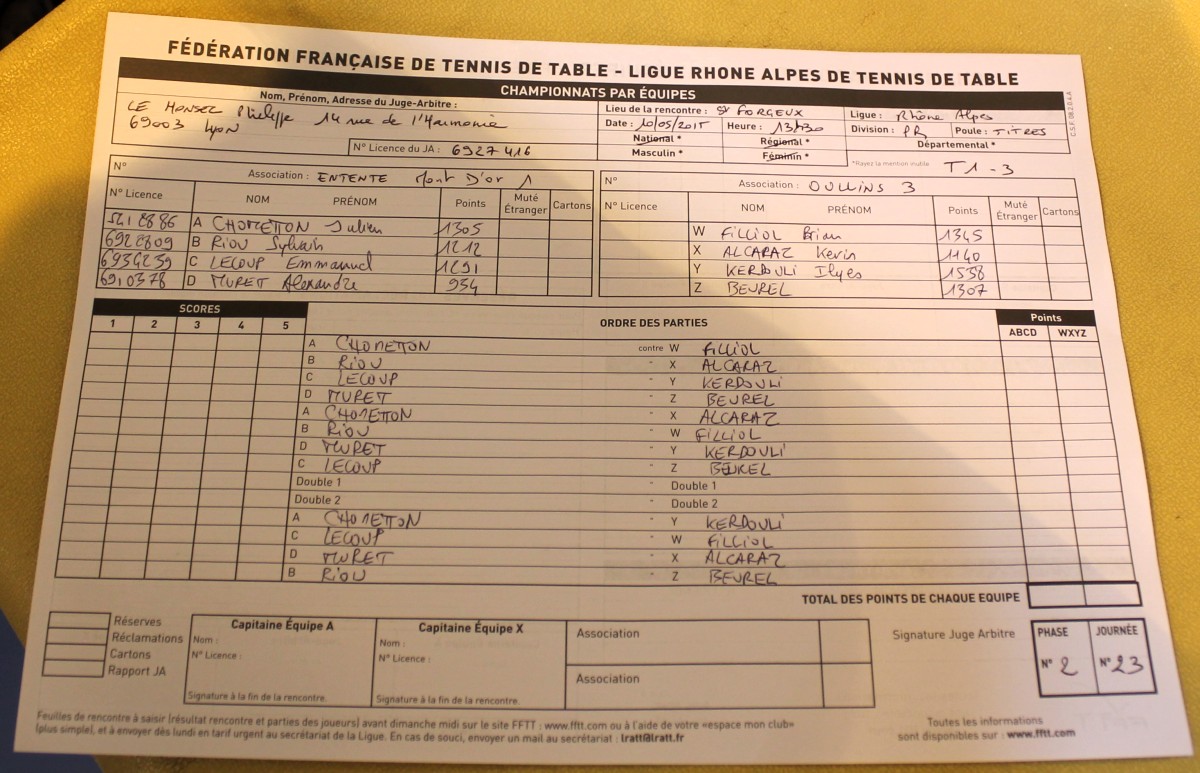 FÉDÉRATION FRANÇAISE DE TENNIS DE TABLE - LIGUE RHONE ALPES DE TENNIS DE TABLE
CHAMPIONNATS PAR ÉQUIPES
Nom, Prénom, Adresse du Juge-Arbitre :
LE MONSEC Philippe 14 rue de l'Harmonie
69003 Lyon
N° Licence du JA : 6927416
Lieu de la rencontre : St FORGEUX
Date : 10/05/2015 Heure : 13H30
National * Régional *
Masculin * Féminin *
Ligue : Rhône Alpes
Division : PR Poule : TITRES
Départemental *
*Rayez la mention inutile T1-3
N° Association : ENTENTE Mont D'or 1
N° Licence NOM PRÉNOM Points Muté Étranger Cartons
A CHOMETTON Julien 1305
6928809 B RIOU Sylvain 1212
6934239 C LECOUP Emmanuel 1291
6910378 D MURET Alexandre 934
N° Association : OULLINS 3
N° Licence NOM PRÉNOM Points Muté Étranger Cartons
W FILLIOL Brian 1345
X ALCARAZ Kevin 1140
Y KERDOULI Ilyes 1538
Z BEUREL 1307
SCORES
1 2 3 4 5
ORDRE DES PARTIES
Points
ABCD WXYZ
A CHOMETTON contre W FILLIOL
B RIOU " X ALCARAZ
C LECOUP " Y KERDOULI
D MURET " Z BEUREL
A CHOMETTON " X ALCARAZ
B RIOU " W FILLIOL
D MURET " Y KERDOULI
C LECOUP " Z BEUREL
Double 1 " Double 1
Double 2 " Double 2
A CHOMETTON " Y KERDOULI
C LECOUP " W FILLIOL
D MURET " X ALCARAZ
B RIOU " Z BEUREL
TOTAL DES POINTS DE CHAQUE EQUIPE
Réserves
Réclamations
Cartons
Rapport JA
Capitaine Équipe A
Nom :
N° Licence :
Signature à la fin de la rencontre.
Capitaine Équipe X
Nom :
N° Licence :
Signature à la fin de la rencontre.
Association
Association
Signature Juge Arbitre
PHASE
N° 2
JOURNÉE
N° 23
Feuilles de rencontre à saisir (résultat rencontre et parties des joueurs) avant dimanche midi sur le site FFTT : www.fftt.com ou à l'aide de votre «espace mon club»
(plus simple), et à envoyer dès lundi en tarif urgent au secrétariat de la Ligue. En cas de souci, envoyer un mail au secrétariat : lratt@lratt.fr
Toutes les informations
sont disponibles sur : www.fftt.com